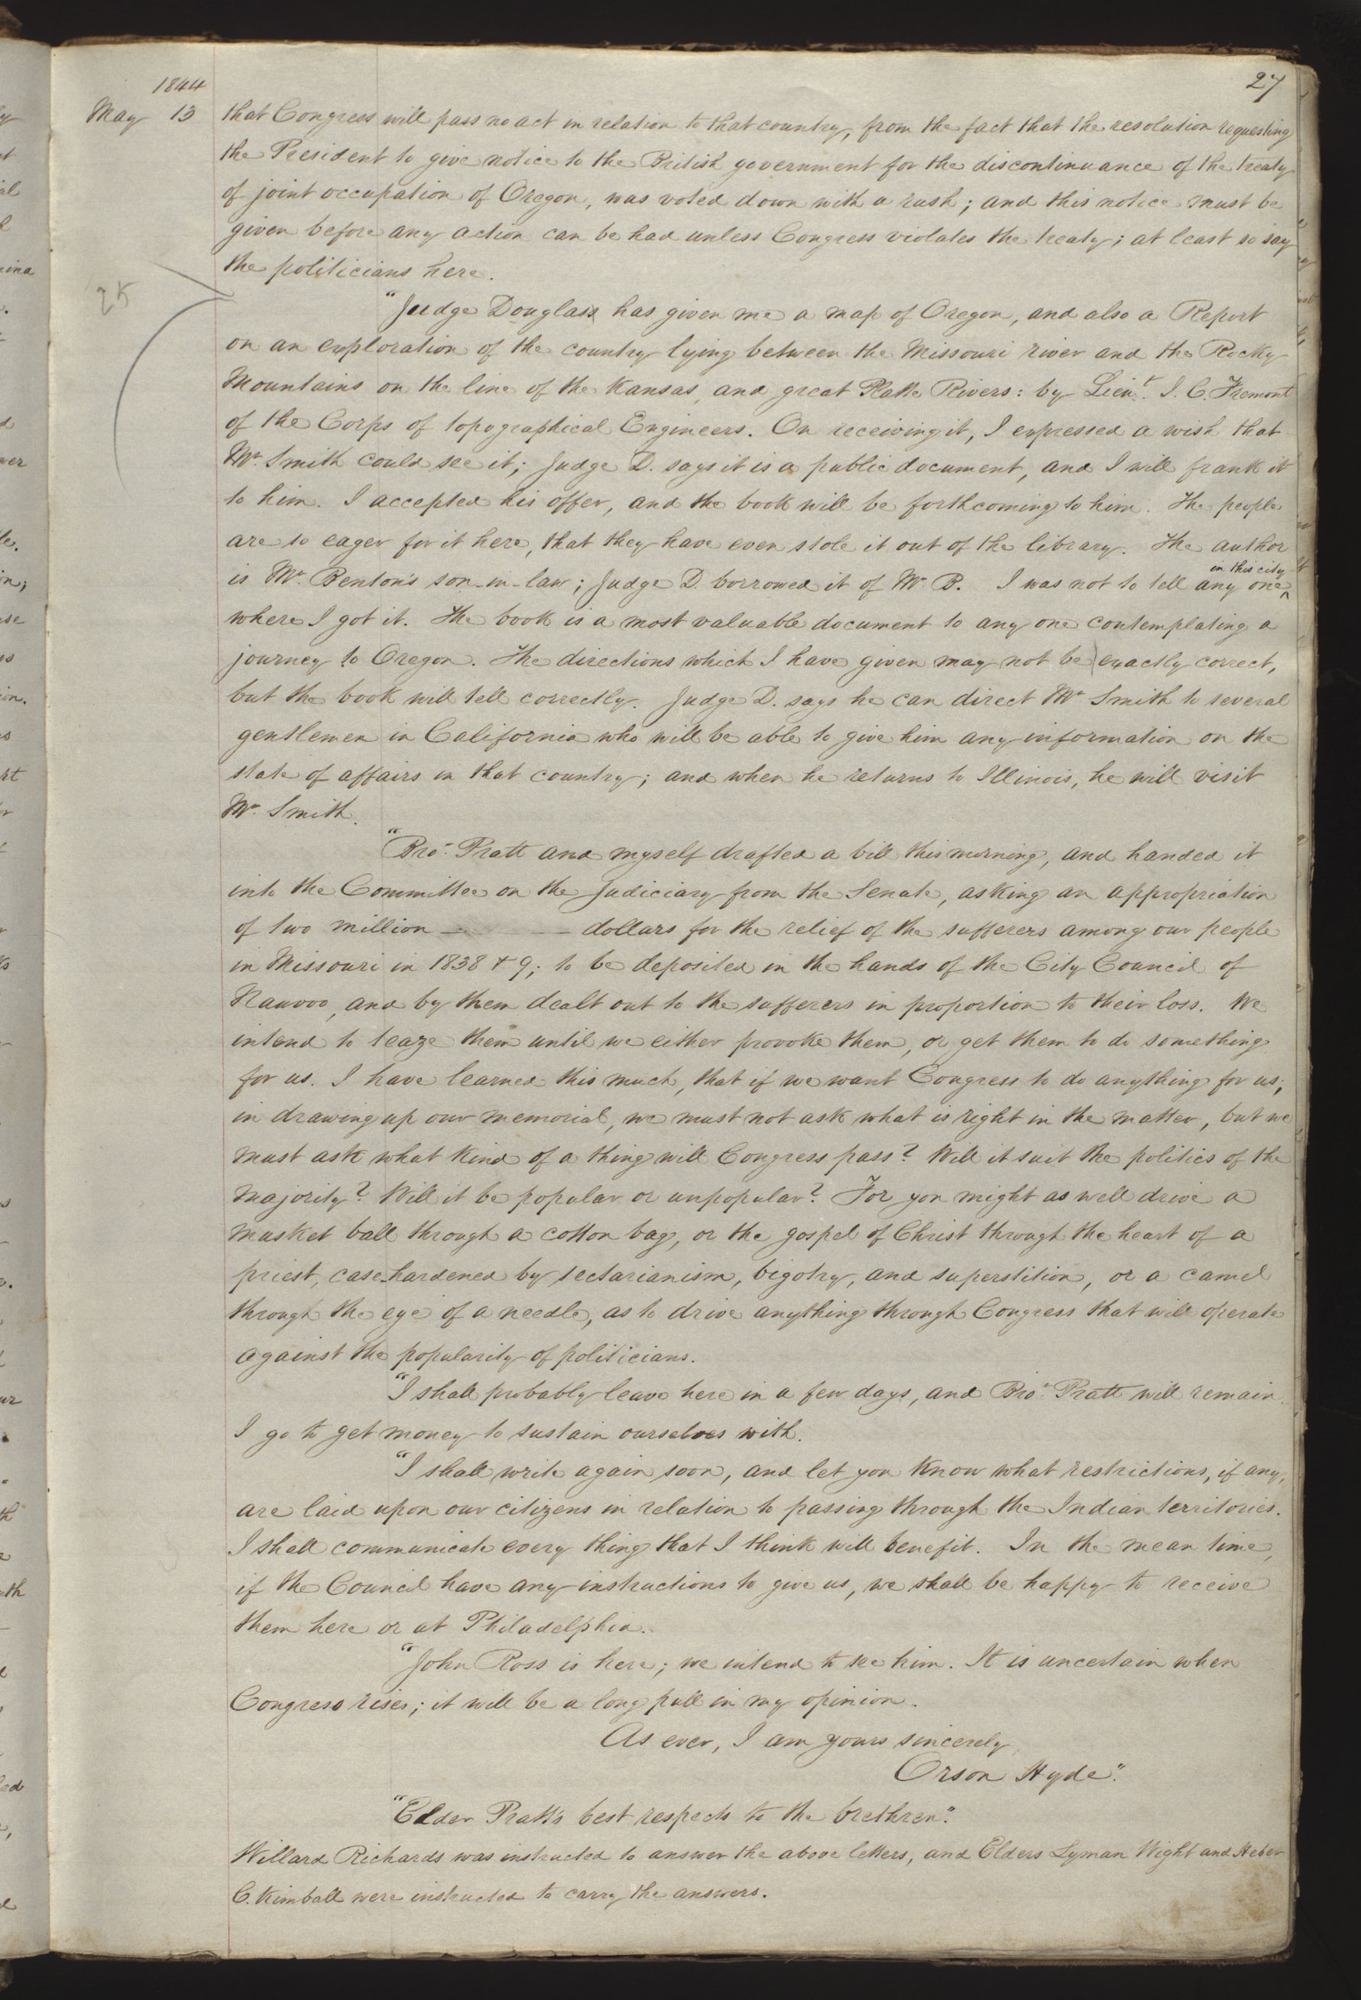 27
1844
May 13 that Congress will pass no act in relation to that country, from the fact that the resolution requesting
the President to give notice to the British government for the discontinuance of the treaty
of joint occupation of Oregon, was voted down with a rush; and this notice must be
given before any action can be had unless Congress violates the treaty; at least so say
the politicians here.
25
"Judge Douglass has given me a map of Oregon, and also a Report
on an exploration of the country lying between the Missouri river and the Rocky
Mountains on the line of the Kansas, and great Platte Rivers: by Lieut. J. C. Fremont
of the Corps of topographical Engineers. On receiving it, I expressed a wish that
Mr. Smith could see it; Judge D. says it is a public document, and I will frank it
to him. I accepted his offer, and the book will be forthcoming to him. The people
are so eager for it here, that they have even stole it out of the library. The author
is Mr. Benton's son-in-law; Judge D. borrowed it of Mr B. I was not to tell any one ^in this city
where I got it. The book is a most valuable document to any one contemplating a
journey to Oregon. The directions which I have given may not be exactly correct,
but the book will tell correctly. Judge D. says he can direct Mr Smith to several
gentlemen in California who will be able to give him any information on the
state of affairs in that country; and when he returns to Illinois, he will visit
Mr. Smith.
"Bro. Pratt and myself drafted a bill this morning, and handed it
into the Committee on the Judiciary from the Senate, asking an appropriation
of two million — — dollars for the relief of the sufferers among our people
in Missouri in 1838 & 9; to be deposited in the hands of the City Council of
Nauvoo, and by them dealt out to the sufferers in proportion to their loss. We
intend to teaze them until we either provoke them, or get them to do something
for us. I have learned this much, that if we want Congress to do anything for us;
in drawing up our memorial, we must not ask what is right in the matter, but we
must ask what kind of a thing will Congress pass? Will it suit the politics of the
majority? Will it be popular or unpopular? For you might as well drive a
musket ball through a cotton bag, or the gospel of Christ through the heart of a
priest, case-hardened by sectarianism, bigotry, and superstition, or a camel
through the eye of a needle, as to drive anything through Congress that will operate
against the popularity of politicians.
"I shall probably leave here in a few days, and Bro. Pratt will remain.
I go to get money to sustain ourselves with.
"I shall write again soon, and let you know what restrictions, if any,
are laid upon our citizens in relation to passing through the Indian territories.
I shall communicate every thing that I think will benefit. In the mean time,
if the Council have any instructions to give us, we shall be happy to receive
them here or at Philadelphia.
"John Ross is here; we intend to see him. It is uncertain when
Congress rises; it will be a long pull in my opinion.
As ever, I am yours sincerely,
Orson Hyde".
"Elder Pratt's best respects to the brethren".
Willard Richards was instructed to answer the above letters, and Elders Lyman Wight and Heber
C. Kimball were instructed to carry the answers.